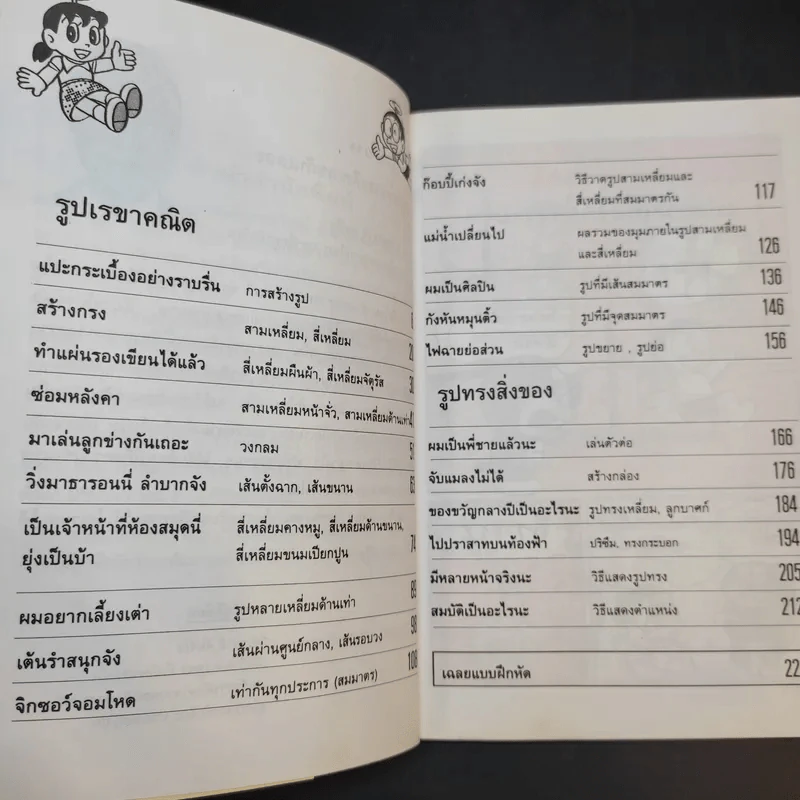 รูปเรขาคณิต
แปะกระเบื้องอย่างราบรื่น การสร้างรูป
สร้างกรง สามเหลี่ยม, สี่เหลี่ยม
ทำแผ่นรองเขียนได้แล้ว สี่เหลี่ยมผืนผ้า, สี่เหลี่ยมจัตุรัส
ซ่อมหลังคา สามเหลี่ยมหน้าจั่ว, สามเหลี่ยมด้านเท่า
มาเล่นลูกข่างกันเถอะ วงกลม
วิ่งมาธารอนนี่ ลำบากจัง เส้นตั้งฉาก, เส้นขนาน
เป็นเจ้าหน้าที่ห้องสมุดนี่ สี่เหลี่ยมคางหมู, สี่เหลี่ยมด้านขนาน,
ยุ่งเป็นบ้า สี่เหลี่ยมขนมเปียกปูน 74
ผมอยากเลี้ยงเต่า รูปหลายเหลี่ยมด้านเท่า 89
เต้นรำสนุกจัง เส้นผ่านศูนย์กลาง, เส้นรอบวง 98
จิกซอว์จอมโหด เท่ากันทุกประการ (สมมาตร) 108
ก๊อบปี้เก่งจัง วิธีวาดรูปสามเหลี่ยมและ
สี่เหลี่ยมที่สมมาตรกัน 117
แม่น้ำเปลี่ยนไป ผลรวมของมุมภายในรูปสามเหลี่ยม
และสี่เหลี่ยม 126
ผมเป็นศิลปิน รูปที่มีเส้นสมมาตร 136
กังหันหมุนติ้ว รูปที่มีจุดสมมาตร 146
ไฟฉายย่อส่วน รูปขยาย , รูปย่อ 156
รูปทรงสิ่งของ
ผมเป็นพี่ชายแล้วนะ เล่นตัวต่อ 166
จับแมลงไม่ได้ สร้างกล่อง 176
ของขวัญกลางปีเป็นอะไรนะ รูปทรงเหลี่ยม, ลูกบาศก์ 184
ไปปราสาทบนท้องฟ้า ปริซึม, ทรงกระบอก 194
มีหลายหน้าจริงนะ วิธีแสดงรูปทรง 205
สมบัติเป็นอะไรนะ วิธีแสดงตำแหน่ง 212
เฉลยแบบฝึกหัด